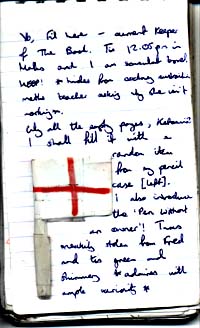 Yo, Ed here - current Keeper
of The Book. Tis 12.05pm in
Maths and I am somewhat bored.
WOOP! * hides from
maths teacher asking why she isn't
working *
Why all the empty pages, Katherine?
I shall fill it with a
random item
from my pencil
case [left].
I also introduce
the 'Pen Without
an owner'! Twas
stolen from Fred
and tis green and
Shimmery * admires with
ample curiosity *